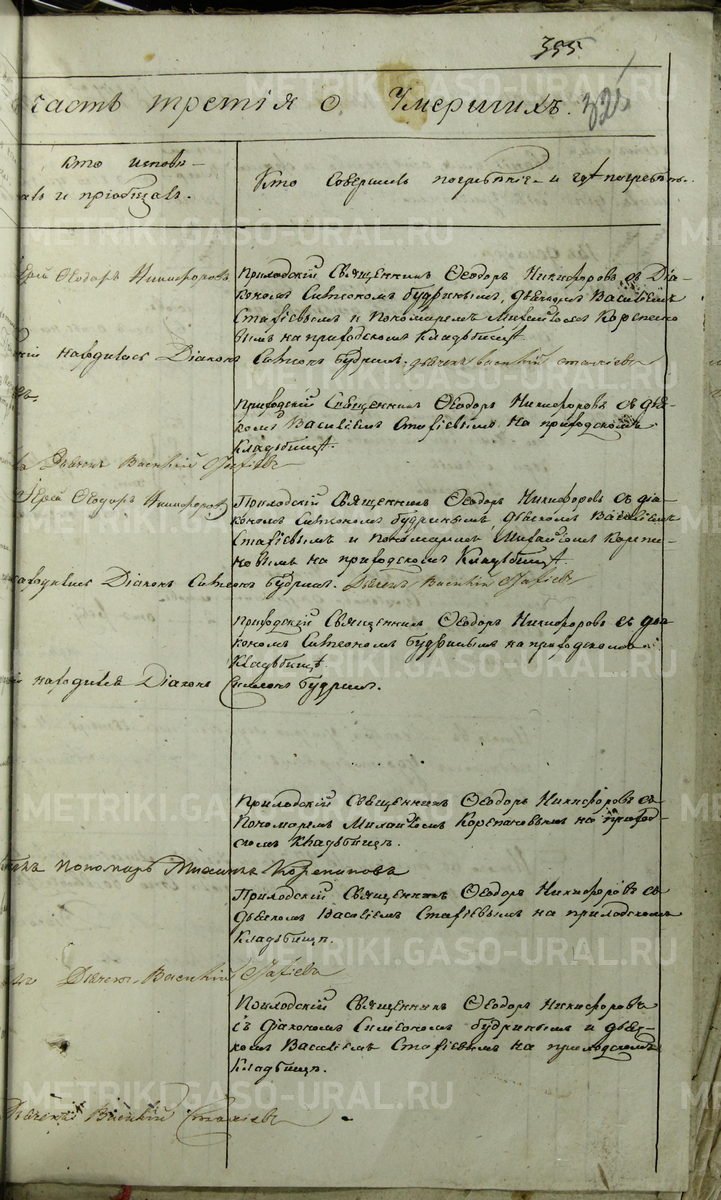 355.
часть третія о Умершихъ.
325
Кто исповѣ-
Кто совершилъ погребѣніе и гдѣ погребѣнъ.
и пріобщалъ.
Ѳеодоръ Никифоровъ
Приходскій Священникъ Ѳеодоръ Никифоровъ съ Діа-
кономъ Симеономъ Будринымъ, дьячкомъ Василіемъ
Стафіевымъ и Пономаремъ Михаиломъ Корепано
вымъ на приходскомъ Кладбищѣ
находились Діаконъ Симеонъ Будринъ. дьячекъ Василій Стафіевъ
Приходскій Священникъ Ѳеодоръ Никифоровъ съ дья-
комъ Василіемъ Стафіевымъ на приходскомъ
Кладьбищѣ.
Дьячекъ Василій Стафіевъ
Іерей Ѳеодоръ Никифоровъ
Приходскій Священникъ Ѳеодоръ Никифоровъ съ діа-
кономъ Симеономъ Будринымъ, дьячкомъ Василіемъ
Стафіевымъ и пономаремъ Михаиломъ Корепа-
новымъ на приходскомъ Кладьбищѣ
находились Діаконъ Симеонъ Будринъ. Дьячекъ Василій Стафіевъ
Приходскій Священникъ Ѳеодоръ Никифоровъ съ діа-
кономъ Симеономъ Будринымъ на приходскомъ
Кладьбищѣ
находился Діаконъ Симеонъ Будринъ.
Приходскій Священникъ Ѳеодоръ Никифоровъ съ
Пономаремъ Михаиломъ Корепановымъ на приход-
скомъ Кладьбищѣ.
пономарь Михаилъ Корепановъ
Приходскій Священникъ Ѳеодоръ Никифоровъ съ
дьячкомъ Василіемъ Стафіевымъ на приходскомъ
Кладьбищѣ.
Дьячекъ Василій Стафіевъ
Приходскій Священникъ Ѳеодоръ Никифоровъ
съ діакономъ Симеономъ Будринымъ и дьяч-
комъ Василіемъ Стафіевымъ на приходскомъ
Кладьбищѣ.
Дьячекъ Василій Стафіевъ
METRIKI.GASO-URAL.RU
METRIKI.GASO-URAL.RU
METRIKI.GASO-URAL.RU
METRIKI.GASO-URAL.RU
METRIKI.GASO-URAL.RU
METRIKI.GASO-URAL.RU
METRIKI.GASO-URAL.RU
METRIKI.GASO-URAL.RU